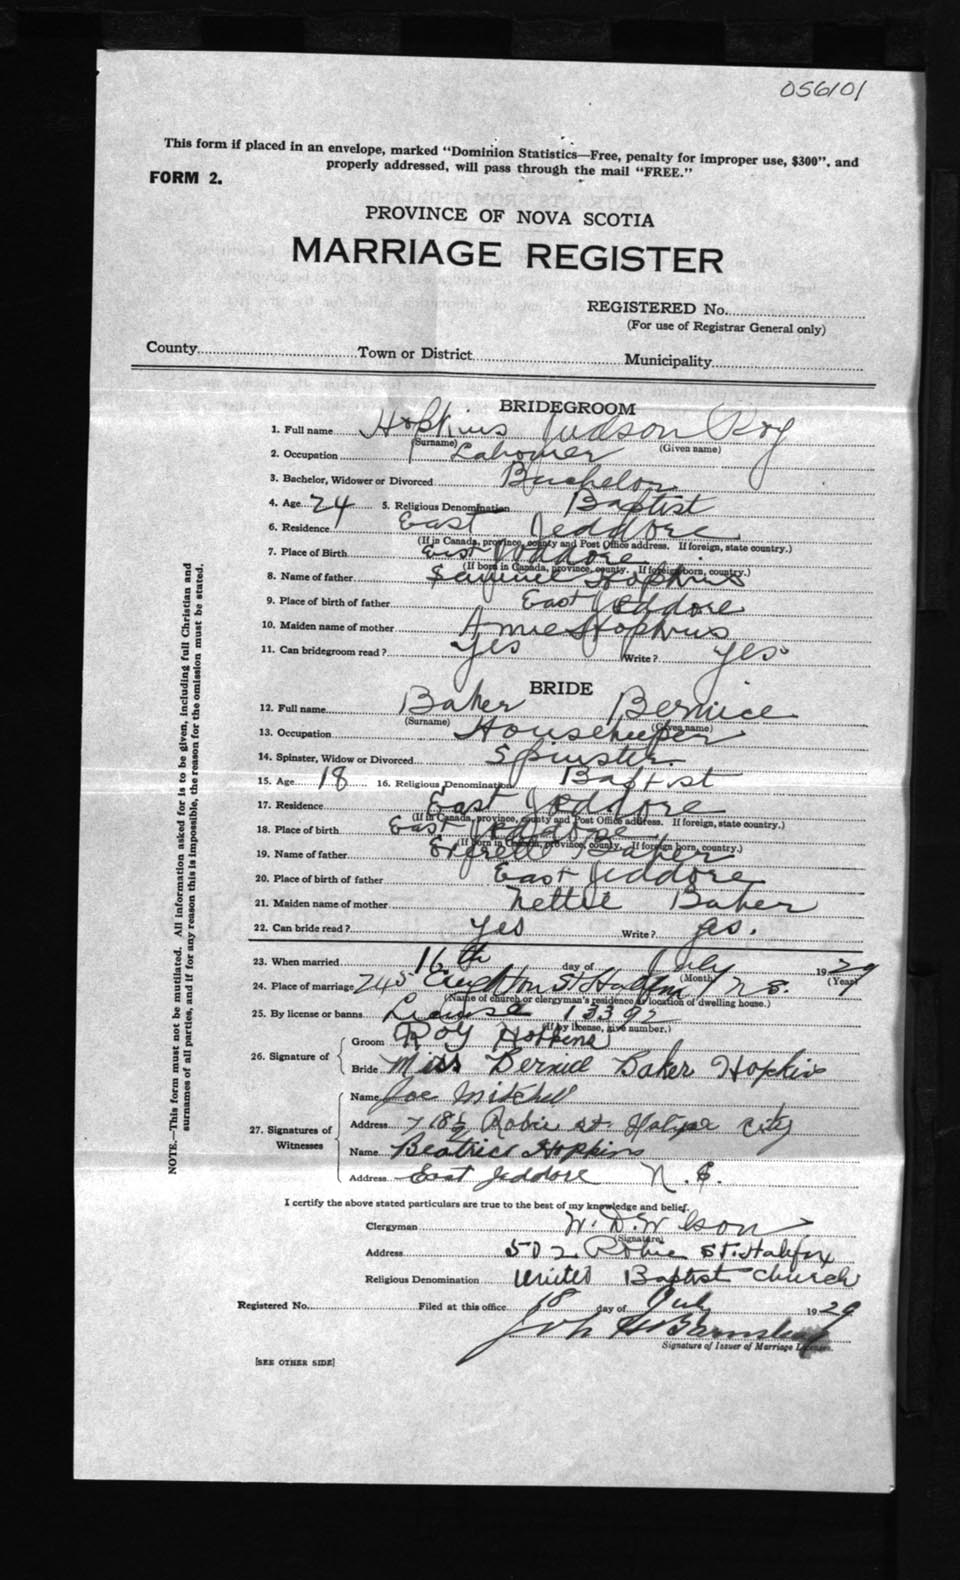 056101
This form if placed in an envelope, marked "Dominion Statistics—Free, penalty for improper use, $300", and
properly addressed, will pass through the mail "FREE."
FORM 2.
PROVINCE OF NOVA SCOTIA
MARRIAGE REGISTER
REGISTERED No.
(For use of Registrar General only)
County Town or District Municipality
BRIDEGROOM
1. Full name Hopkins Judson Roy
(Surname) (Given name)
2. Occupation Labourer
3. Bachelor, Widower or Divorced Bachelor
4. Age 24 5. Religious Denomination Baptist
6. Residence East Jeddore
(If in Canada, province, county and Post Office address. If foreign, state country.)
7. Place of Birth East Jeddore
(If born in Canada, province, county. If foreign born, country.)
8. Name of father Samuel Hopkins
9. Place of birth of father East Jeddore
10. Maiden name of mother Annie Hopkins
11. Can bridegroom read? Yes Write? yes
BRIDE
12. Full name Baker Bernice
(Surname) (Given name)
13. Occupation Housekeeper
14. Spinster, Widow or Divorced Spinster
15. Age 18 16. Religious Denomination Baptist
17. Residence East Jeddore
(If in Canada, province, county and Post Office address. If foreign, state country.)
18. Place of birth East Jeddore
(If born in Canada, province, county. If foreign born, country.)
19. Name of father Everett Baker
20. Place of birth of father East Jeddore
21. Maiden name of mother Nettie Baker
22. Can bride read? yes Write? yes.
23. When married 16th day of July 1929
(Month) (Year)
24. Place of marriage 245 Creighton St Halifax N S.
(Name of church or clergyman's residence or location of dwelling house.)
25. By license or banns License 13392
(If by license, give number.)
26. Signature of
Groom Roy Hopkins
Bride Miss Bernice Baker Hopkins
27. Signatures of Witnesses
Name Joe Mitchell
Address 718½ Robie st. Halifax City
Name Beatrice Hopkins
Address East Jeddore N. S.
I certify the above stated particulars are true to the best of my knowledge and belief.
Clergyman W. D. Wilson
(Signature)
Address 502 Robie St. Halifax
Religious Denomination United Baptist Church
Registered No. Filed at this office 18 day of July 1929
Signature of Issuer of Marriage Licenses.
[SEE OTHER SIDE]
NOTE.—This form must not be mutilated. All information asked for is to be given, including full Christian and
surnames of all parties, and if for any reason this is impossible, the reason for the omission must be stated.